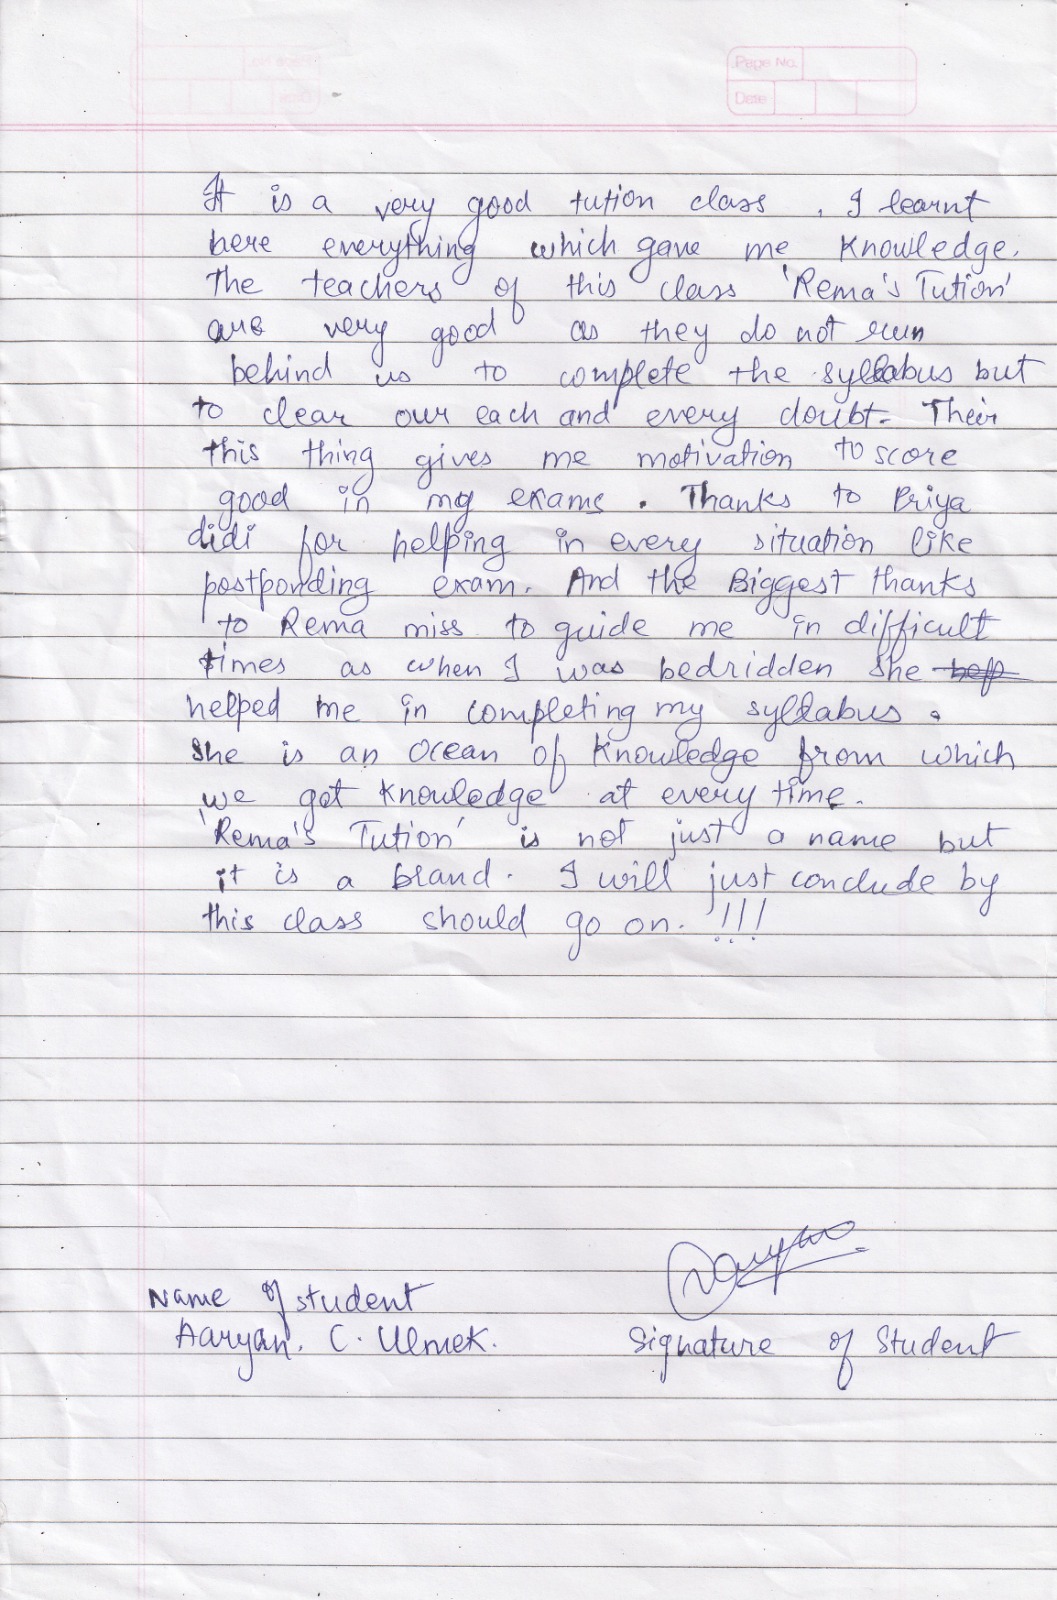 Page No.
Date
It is a very good tution class . I learnt
here everything which gave me knowledge.
The teachers of this class 'Rema's Tution'
are very good as they do not run
behind us to complete the syllabus but
to clear our each and every doubt. Their
this thing gives me motivation to score
good in my exams . Thanks to Priya
didi for helping in every situation like
postponding exam. And the Biggest thanks
to Rema miss to guide me in difficult
times as when I was bedridden she help
helped me in completing my syllabus .
She is an Ocean of Knowledge from which
we got knowledge at every time.
'Rema's Tution' is not just a name but
it is a brand. I will just conclude by
this class should go on. !!!
Aaryan
Name of student
Aaryan. C. Ulmek.
Signature of Student